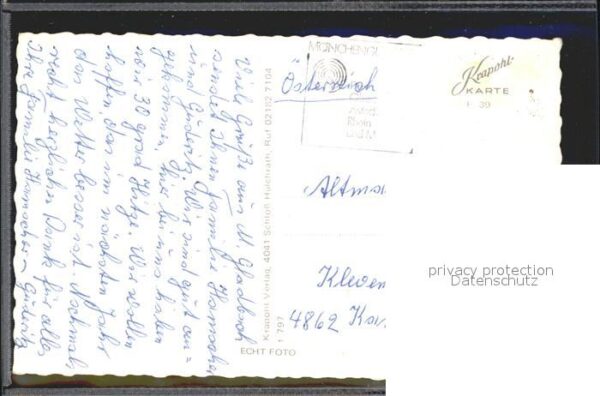 Viele Grüße aus M Gladbach
sendet Ihnen Familie Hamacher
und Güdvitz. Wir sind gut an-
gekommen, hier bei uns haben
wir 30 grad Hitze. Wir wollen
hoffen das im nächsten Jahr
das Wetter besser ist. Nochmals
recht herzlichen Dank für alles
Ihre Familie Hamacher
Krapohl Verlag, 4041 Schloß Hülchrath, Ruf 02182 7104
1 797
ECHT FOTO
MÖNCHENGL
Rhein
Österreich
Krapohl-
KARTE
39
Altma
Kleven
4862
privacy protection
Datenschutz